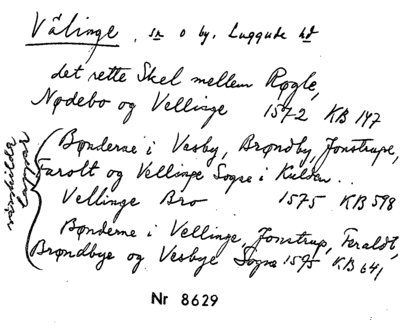 Välinge, sn o by, Luggude hd
det rette Skel mellem Røgle,
Nødebo og Vellinge 1572 KB 147
Bønderne i Vesby, Brøndby, Jonstrupe,
Farolt og Vellinge Sogne i Kulden..
Vellinge Bro 1575 KB 598
Bønderne i Vellinge, Jonstrup, Feraldt,
Brøndbye og Vesbye Sogne 1595 KB 641
särskilda
lappar
Nr 8629